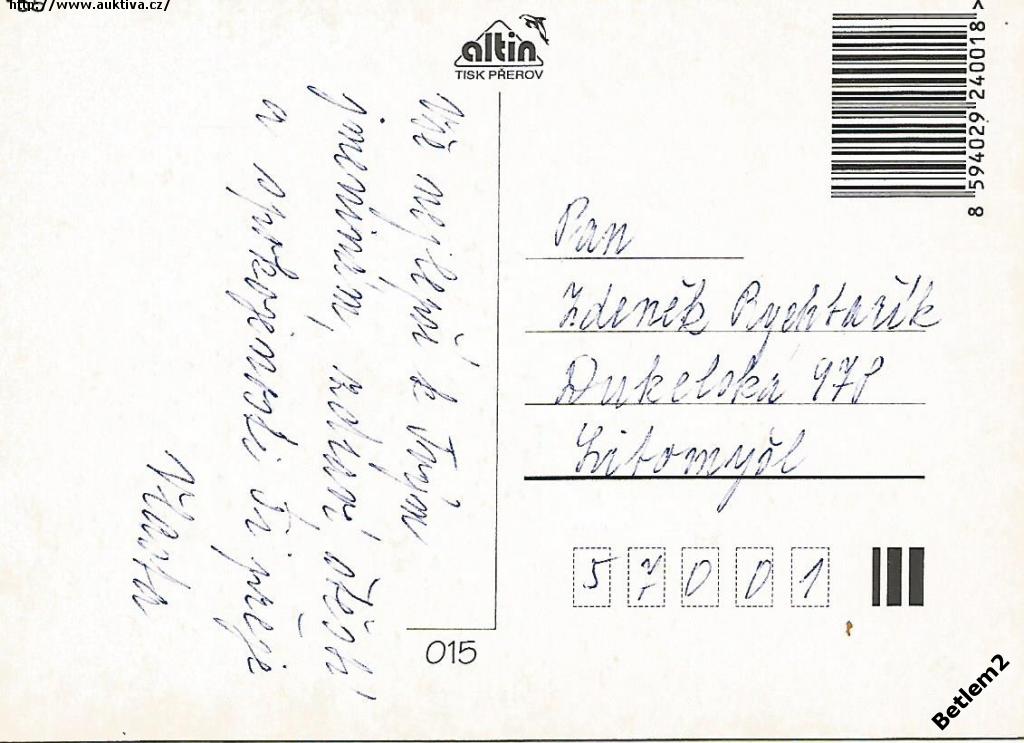 http://www.auktiva.cz/
altin
TISK PŘEROV
8 594029 240018 >
Vše nejlepší k Tvým
jmeninám, zdraví, štěstí
a spokojenosti Ti přeje
Vlasta
Pan
Zdeněk Rychtařík
Dukelská 978
Litomyšl
57001
015
Betlem2